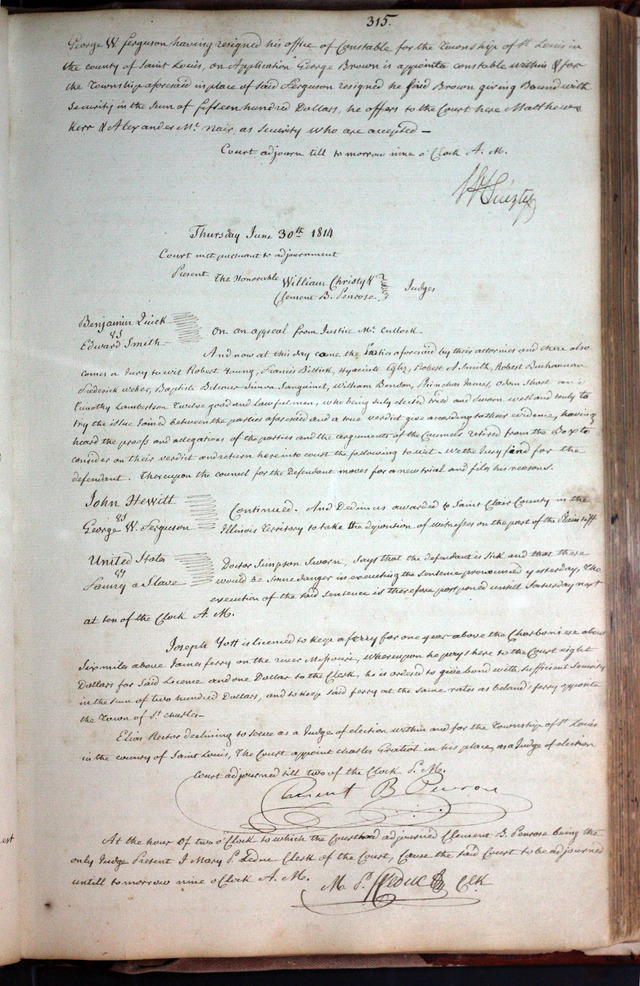 315.
George W Ferguson having resigned his office of Constable for the Township of St Louis in
the county of Saint Louis, on Application George Brown is appointed constable within & for
the Township aforesaid in place of said Ferguson resigned he said Brown giving Bound with
Security in the sum of fifteen hundred Dollars, he offers to the Court here Matthew
Kerr & Alexander Mc nair, as security who are accepted —
Court adjourn till to morrow nine o'Clock A. M.
Thursday June 30th 1814
Court met pursuant to adjournment
Present The Honorable William Christy &
Clement B. Penrose, Judges
Benjamin Quick
vs
Edward Smith
On an appeal from Justice Mc Cullock
And now at this day came the Parties aforesaid by their attornies and there also
comes a Jury to wit Robert Young, Francis Bittick, Hyacinte Robert A. Smith, Robert Buchannan
Frederick Baptiste Simon Sanguinet, William Princhas James, Short and
Timothy Lamberson Twelve good and lawful men, who being duly elected tried and sworn well and truly to
try the issue Joined between the parties aforesaid and a true verdict give according to their evidence, having
heard the proofs and allegations of the parties and the arguments of the Councels retired from the Box to
consider on their verdict and return here into court the following to wit - We the Jury find for the
defendant. Thereupon the council for the Defendant moves for a new trial and files his reasons.
John Hewitt
vs
George W. Ferguson
Continued. And Dedimus awarded to Saint Clair County in the
Illinois Territory to take the deposition of witnesses on the part of the Plaintiff
United States
vs
a Slave
Doctor Simpson Sworn, Says that the defendant is Sick and that there
would be some danger in executing the sentence pronounced yesterday, The
execution of the said sentence is therefore postponed untill Saturday next
at ten of the Clock A. M.
Joseph Yott is licenced to keep a ferry for one year above the Charboniere about
Six miles above James ferry on the river Missouri, Whereupon he pays here to the Court eight
Dollars for said Licence and one Dollar to the Clerk, he is ordered to give bond with sufficient Security
in the sum of two hundred Dollars, and to keep said ferry at the same rates as ferry opposite
the Town of St. charles—
Elias Rector declining to serve as a Judge of election within and for the Township of St Louis
in the county of Saint Louis, The Court appoint charles Gratiot in his place, as a Judge of election
Court adjourned till two of the Clock P. M.
Clement B Penrose
At the hour of two o'Clock to which the Court had adjourned Clement B. Penrose being the
only Judge Present I Mary P. Leduc Clerk of the Court, Cause the said Court to be adjourned
untill to morrow nine o'Clock A. M.
M P. Leduc Clk